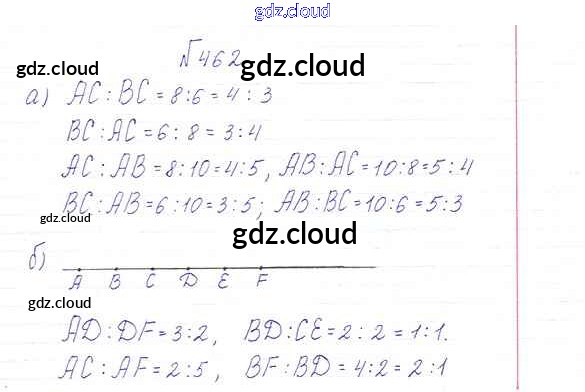 gdz.cloud
№462
gdz.cloud gdz.cloud
а) AC : BC = 8:6 = 4 : 3
BC : AC = 6 : 8 = 3:4
gdz.cloud
AC : AB = 8:10 = 4:5, AB : AC = 10:8 = 5:4
BC : AB = 6:10 = 3:5; AB : BC = 10:6 = 5:3
gdz.cloud
gdz.cloud
б)
A B C D E F
gdz.cloud
AD : DF = 3:2, BD : CE = 2 : 2 = 1:1.
AC : AF = 2:5, BF : BD = 4:2 = 2:1
gdz.cloud